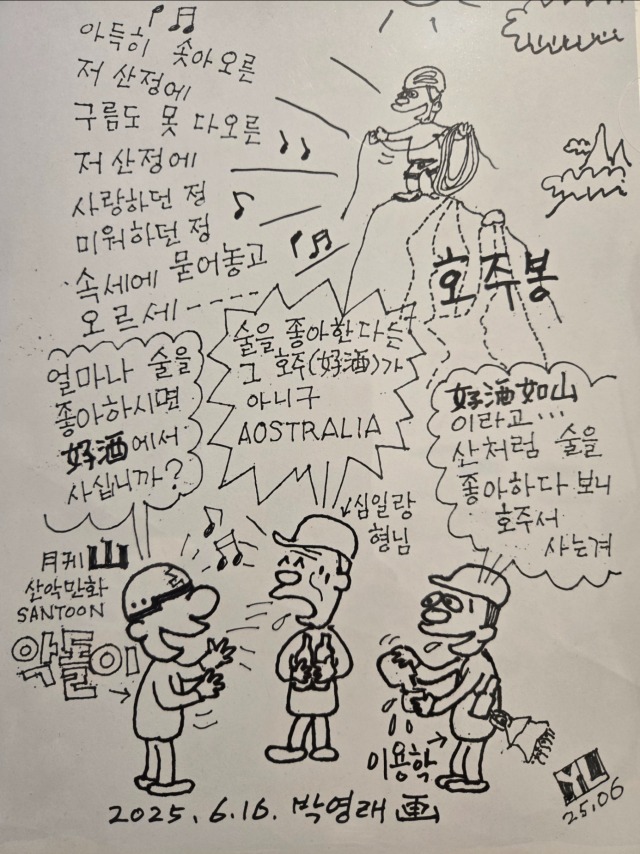 아득히 솟아오른
저 산정에
구름도 못 다오른
저 산정에
사랑하던 정
미워하던 정
속세에 묻어놓고
오르세-----
호주봉
얼마나 술을
좋아하시면
好酒에서
사십니까?
술을 좋아한다는
그 호주(好酒)가
아니구
AOSTRALIA
好酒如山
이라고...
산처럼 술을
좋아하다 보니
호주서
사는겨
심일랑
형님
月刊山
산악만화
SANTOON
악돌이
이용학
2025.6.16. 박영래 画
YL
25.06